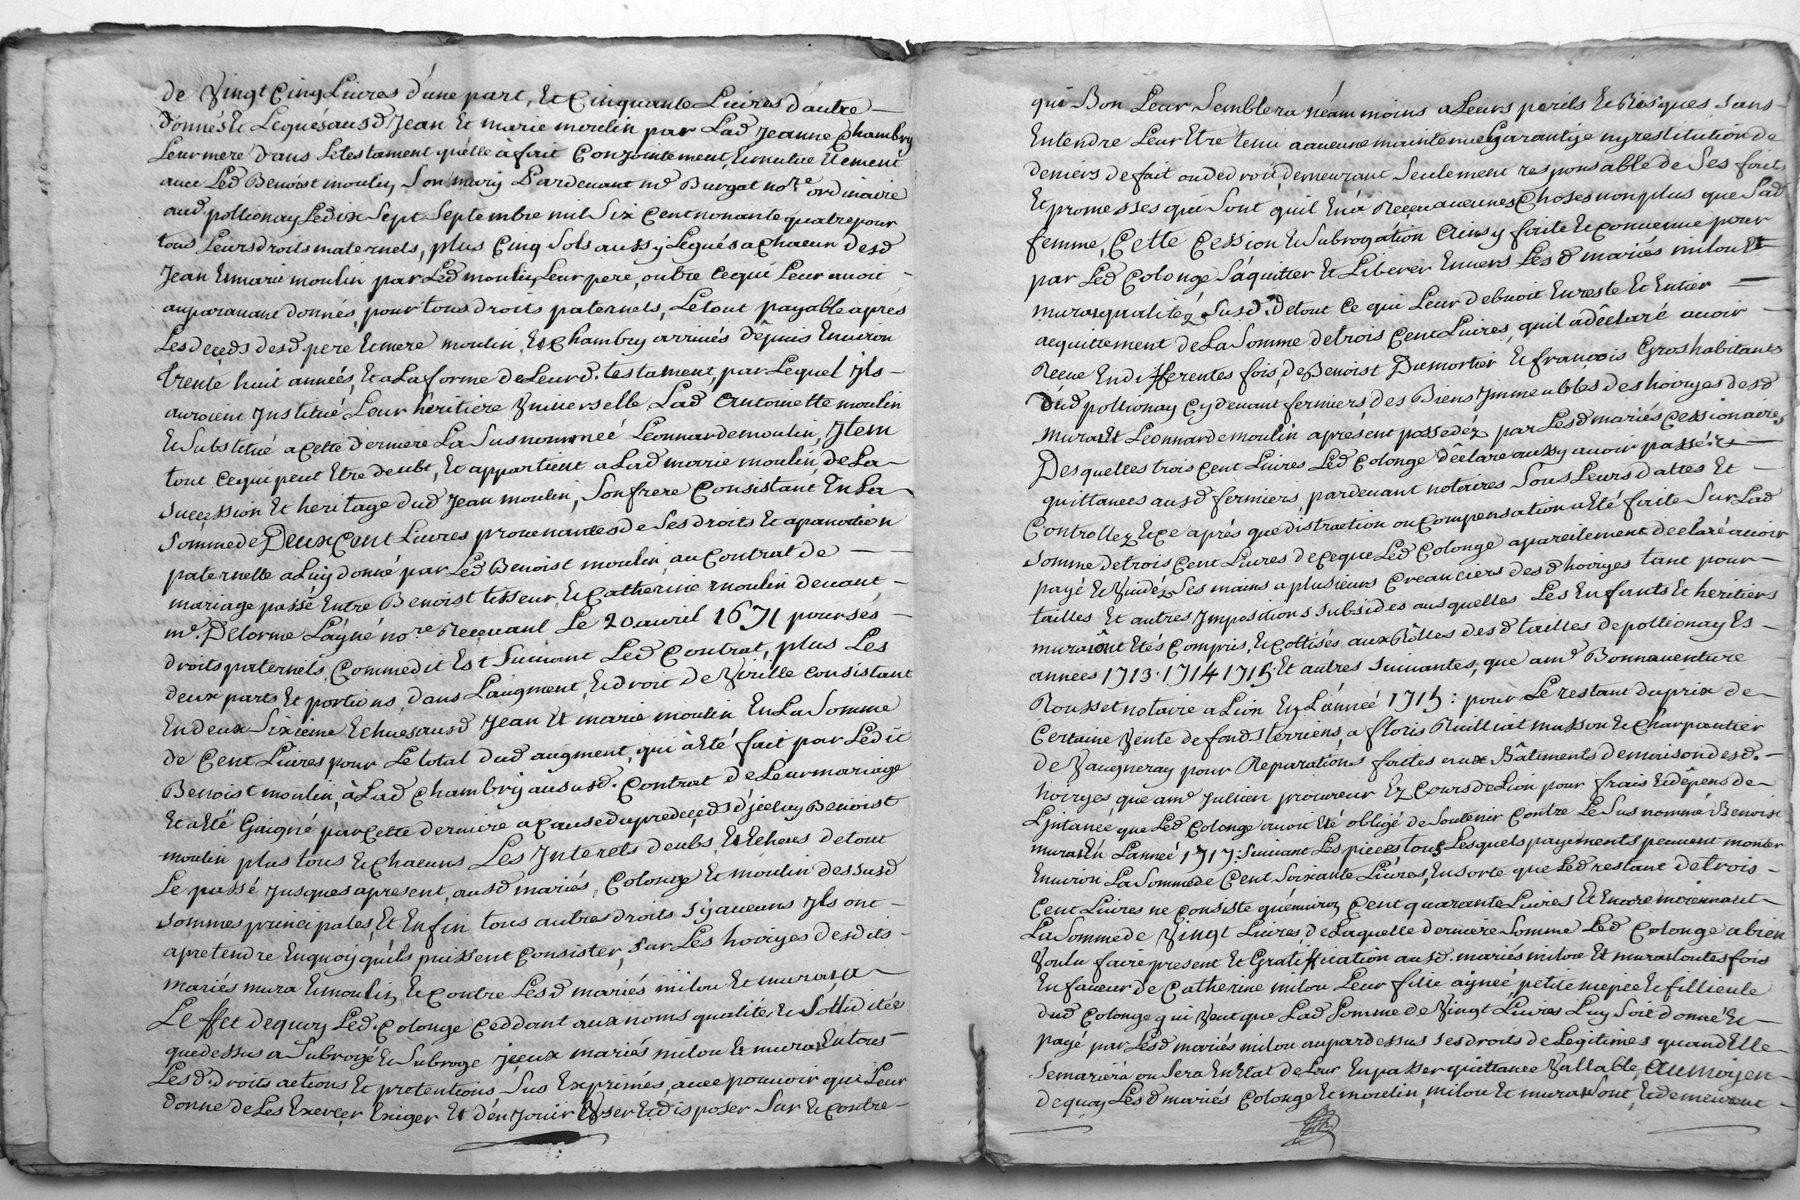 de Vingt Cinq Livres d'une part, Et Cinquante Livres d'autre
donnés Et Legués ausd Jean Et marie moulin par Lad Jeanne Chambry
Leur mere dans Le testament quelle à fait Conjointement, Et mutuellement
avec Led Benoist moulin Son mary Pardevant me Burgat nore ordinaire
aud. pollionay Le dix Sept Septembre mil Six Cent nonante quatre pour
tous Leurs droits maternels, plus Cinq Sols aussy Legués a Chacun desd
Jean Et marie moulin par Led moulin, Leur pere, outre Cequi Leur avoit
auparavant donnés pour tous droits paternels, Le tout payable apres
Les deceds desd. pere Et mere moulin, Et Chambry arrivés depuis Environ
trente huit années, Et a La forme de Leurd. testament, par Lequel Jls
auroient Jnstitué Leur heritiere Vniverselle Lad Antoinette moulin
Et Substitué a Cette derniere La Susnommeé Leonnarde moulin, Jtem
tout Cequi peut Etre deubt, Et appartient a Lad marie moulin, de La
Succession Et heritage dud Jean moulin, Son frere Consistant En La
Somme de Deux Cent Livres provenantes de Ses droits Et aparrotion
paternelle a Luy donné par Led Benoist moulin au Contrat de
mariage passé Entre Benoist tisseur Et Catherine moulin devant
me. Delorme L'aÿné nore Recevant Le 20 avril 1671 pour ses
droits paternels, Comme dit Est Suivant Led Contrat, plus Les
deux parts Et portions, dans L'augment, Et droit de Virille consistant
En deux Sixieme Echues ausd Jean Et marie moulin En La Somme
de Cent Livres pour Le total dud augment, qui à Eté fait par Ledit
Benoist moulin, à Lad Chambry aususd. Contrat de Leur mariage
Et a Eté Gaigné par Cette derniere a Cause du predeceds d'jceluy Benoist
moulin plus tous Et Chacuns Les Jnterets deubs, Et Echeus de tout
Le passé Jusques apresent, ausd mariés, Colonge Et moulin des susd
Sommes principales, Et Enfin tous autres droits S'y aucuns Jls ont
apretendre En quoy qu'ils puissent Consister, Sur Les hoiryes desdits
mariés mura Et moulin, Et Contre Lesd mariés milou Et mura,
L'effet dequoy Led. Colonge Ceddant aux noms qualités Et Sollidités
que dessus a Subrogé Et Subroge jceux mariés milou Et mura En tous
Lesd. droits actions Et pretentions Sus Exprimés, avec pouvoir qui Leur
donne de Les Exercer Exiger Et d'en Jouïr Vser Et disposer Sur Et Contre
qui Bon Leur Semblera néam moins a Leurs perils Et Risques, Sans
Entendre Leur Etre tenu a aucune maintenue Garantige ny restitution de
deniers de fait ou de droit, demeurant Seulement responsable de Ses fait
Et promesses qui Sont quil En'a Reçeu aucunes Choses non plus que Sad
femme, Cette Cession Et Subrogation Ainsy faite Et Convenue pour
par Led Colonge S'aquitter Et Liberer Envers Lesd mariés milou Et
mura qualitéz Susd. de tout Ce qui Leur debvoit En reste Et Entier
acquittement de La Somme de trois Cent Livres, quil a déclaré avoir
Receue En differentes fois, de Benoist Dumortier Et françois Gros habitants
Dud pollionay Cy devant fermiers, des Biens Jmmeubles des hoiryes desd
mura Et Leonnarde moulin apresent possedéz par Lesd mariés Cessionaires
Desquelles trois Cent Livres Led Colonge déclare aussy avoir passé
quittances ausd fermiers, pardevant notaires Sous Leurs dattes Et
Controllez Et Ce aprés que distraction ou Compensation a Eté faite Sur Lad
Somme de trois Cent Livres de Ceque Led Colonge apareillement declaré avoir
payé Et Vuidéz Ses mains a plusieurs Creanciers desd hoiryes tant pour
tailles Et autres Jmpositions Subsides ausquelles Les Enfants Et heritiers
mura ont Etés Compris, Et Cottisés aux Rôlles desd tailles de pollionay Es
années 1713. 1714 1715. Et autres Suivantes, que a me Bonnaventure
Rousset notaire a Lion En L'année 1715: pour Le restant du prix de
Certaine Vente de fonds terriens, a floris Ruilliat masson Et Charpantier
de Vaugneray pour Reparations faites aux Bâtiments de maison desd.
hoiryes, que a me Jullien procureur Ez Cours de Lion pour frais Et dépens de
L'jntance, que Led Colonge avoit Eté obligé de Soutenir Contre Le Susnommé Benoist
mura En L'anneé 1717: Suivant Les pieces tous Lesquels payements peuvent monter
Environ La Somme de Cent Soixante Livres, En sorte que Led restant de trois
Cent Livres ne Consiste qu'environ Cent quarante Livres Et Encore moiennant
La Somme de Vingt Livres, de Laquelle derniere Somme Led Colonge a bien
Voulu faire present Et Gratiffication ausd. mariés milou Et mura toutes fois
En faveur de Catherine milou Leur fille aynée petite niepce Et fillieule
dud Colonge qui Veut que Lad Somme de Vingt Livres Luy Soit donné Et
payé par Lesd mariés milou aupardessus ses droits de Legitimes quand Elle
Semariera ou Sera En Etat de Leur En passer quittance Vallable, Aumoyen
dequoy Lesd mariés Colonge Et moulin, milou Et mura Sont, Et demeurent